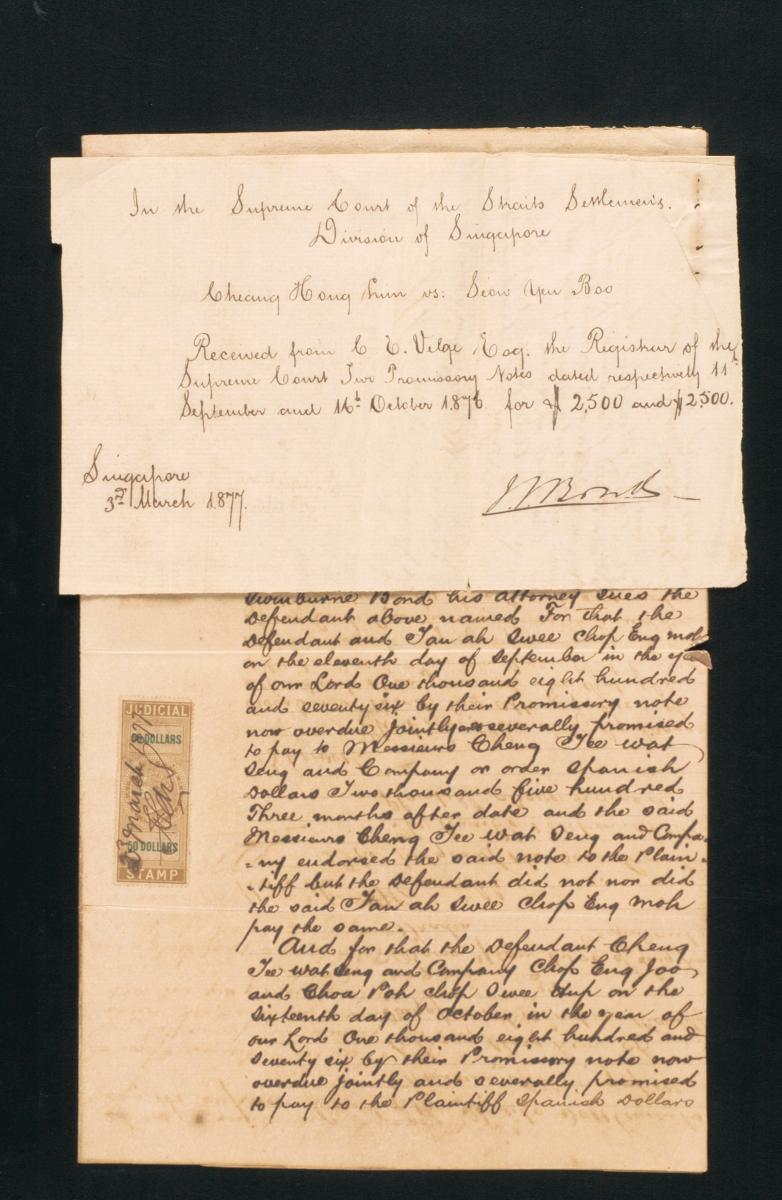 In the Supreme Court of the Straits Settlements.
Division of Singapore
Cheang Hong Lim vs: Seow Yen Boo
Received from C E. Velge, Esq. the Registrar of the
Supreme Court Two Promissory Notes dated respectively 11th
September and 16th October 1876 for $ 2,500 and $2,500.
Singapore
3rd March 1877.
Bond
Swinburne Bond his attorney sues the
Defendant above named For that the
Defendant and Tan ah Swee Chop Eng moh
on the eleventh day of September in the
of our Lord One thousand eight hundred
and seventy six by their Promissory note
now overdue jointly and severally promised
to pay to Messieurs Cheng Tee wat
Seng and Company or order Spanish
Dollars Two thousand five hundred
Three months after date and the said
Messieurs Cheng Tee wat Seng and Compa-
-ny endorsed the said note to the Plain-
-tiff but the Defendant did not nor did
the said Tan ah Swee Chop Eng Moh
pay the same.
And for that the Defendant Cheng
Tee wat Seng and Company Chop Eng Joo
and Choa Poh Chop Swee Hup on the
Sixteenth day of October in the year of
our Lord One thousand eight hundred and
Seventy six by their Promissory note now
overdue jointly and severally promised
to pay to the Plaintiff Spanish Dollars
JUDICIAL
50 DOLLARS
3 March 1877
50 DOLLARS
STAMP